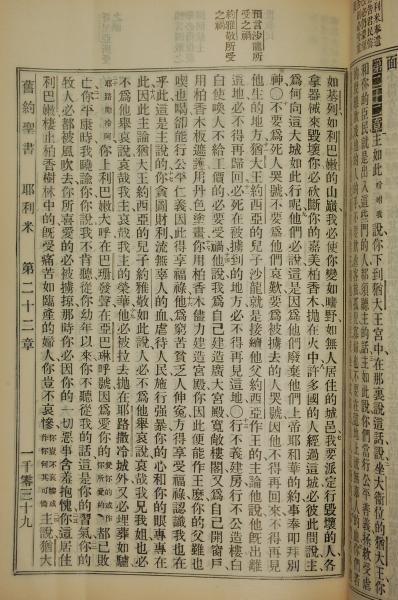 主如此吩咐我說你下到猶大王宮中在那裏說這話說坐大衛位的猶大王你
和你的臣民就是出入這些門的人都須聽主的話主如此說你們當行公平善義拯救受虐
預言沙龍所
受之禍
約雅敬所受
之禍
如基列如利巴嫩的山巔我必使你變如曠野如無人居住的城邑我要派定行毀壞的人各
拿器械來毀壞你必砍斷你的嘉美柏香木拋在火中許多國的人經過這城必彼此問說主
為何向這大城如此行呢他們必說這是因為他們廢棄他們上帝耶和華的約事奉叩拜別
神○不要為死人哭號不要為他們哀歎要為被擄去的人哭號因他不得再回來不得再見
他生的地方猶大王約西亞的兒子沙龍就是接續他父約西亞作王的主論他說他既出離
這地必不得再歸回必死在被擄到的地方必不得再見這地○行不義建房行不公造樓白
白使喚人不給工價的必要受禍他說我為自己建造廣大宮殿寬敞樓閣又為自己開窗戶
用柏香木板遮護用丹色塗畫你用柏香木儘力建造宮殿你因此便能作王麼你的父雖也
喫也喝卻能行公平仁義因此得享福祿他為窮苦貧乏人伸冤方得享受福祿認識我也在
乎此這是主說的你貪圖財利流無辜人的血虐待人民施行強暴你的心和你的眼專專在
此因此主論猶大王約西亞的兒子約雅敬如此說人必不為他舉哀說哀哉我兄姐也必
不為他舉哀說哀哉我主哀哉我主的榮華他必被拉去拋在耶路撒冷城外又必埋葬如驢
耶路撒冷阿你上利巴嫩大呼在巴珊發聲在亞巴琳呼號因為愛你的都已敗
亡你平康時我曉諭你你說我不肯聽從你幼年以來你不聽從我的話這是你的習氣你的
牧人必都被風吹去你所喜愛的必被擄掠那時你必因你的一切惡事含羞抱愧你這居住
利巴嫩棲止柏香樹林中的既受痛苦如臨產的婦人你豈不哀慘主說猶大
舊約聖書 耶利米 第二十二章 一千零三十九